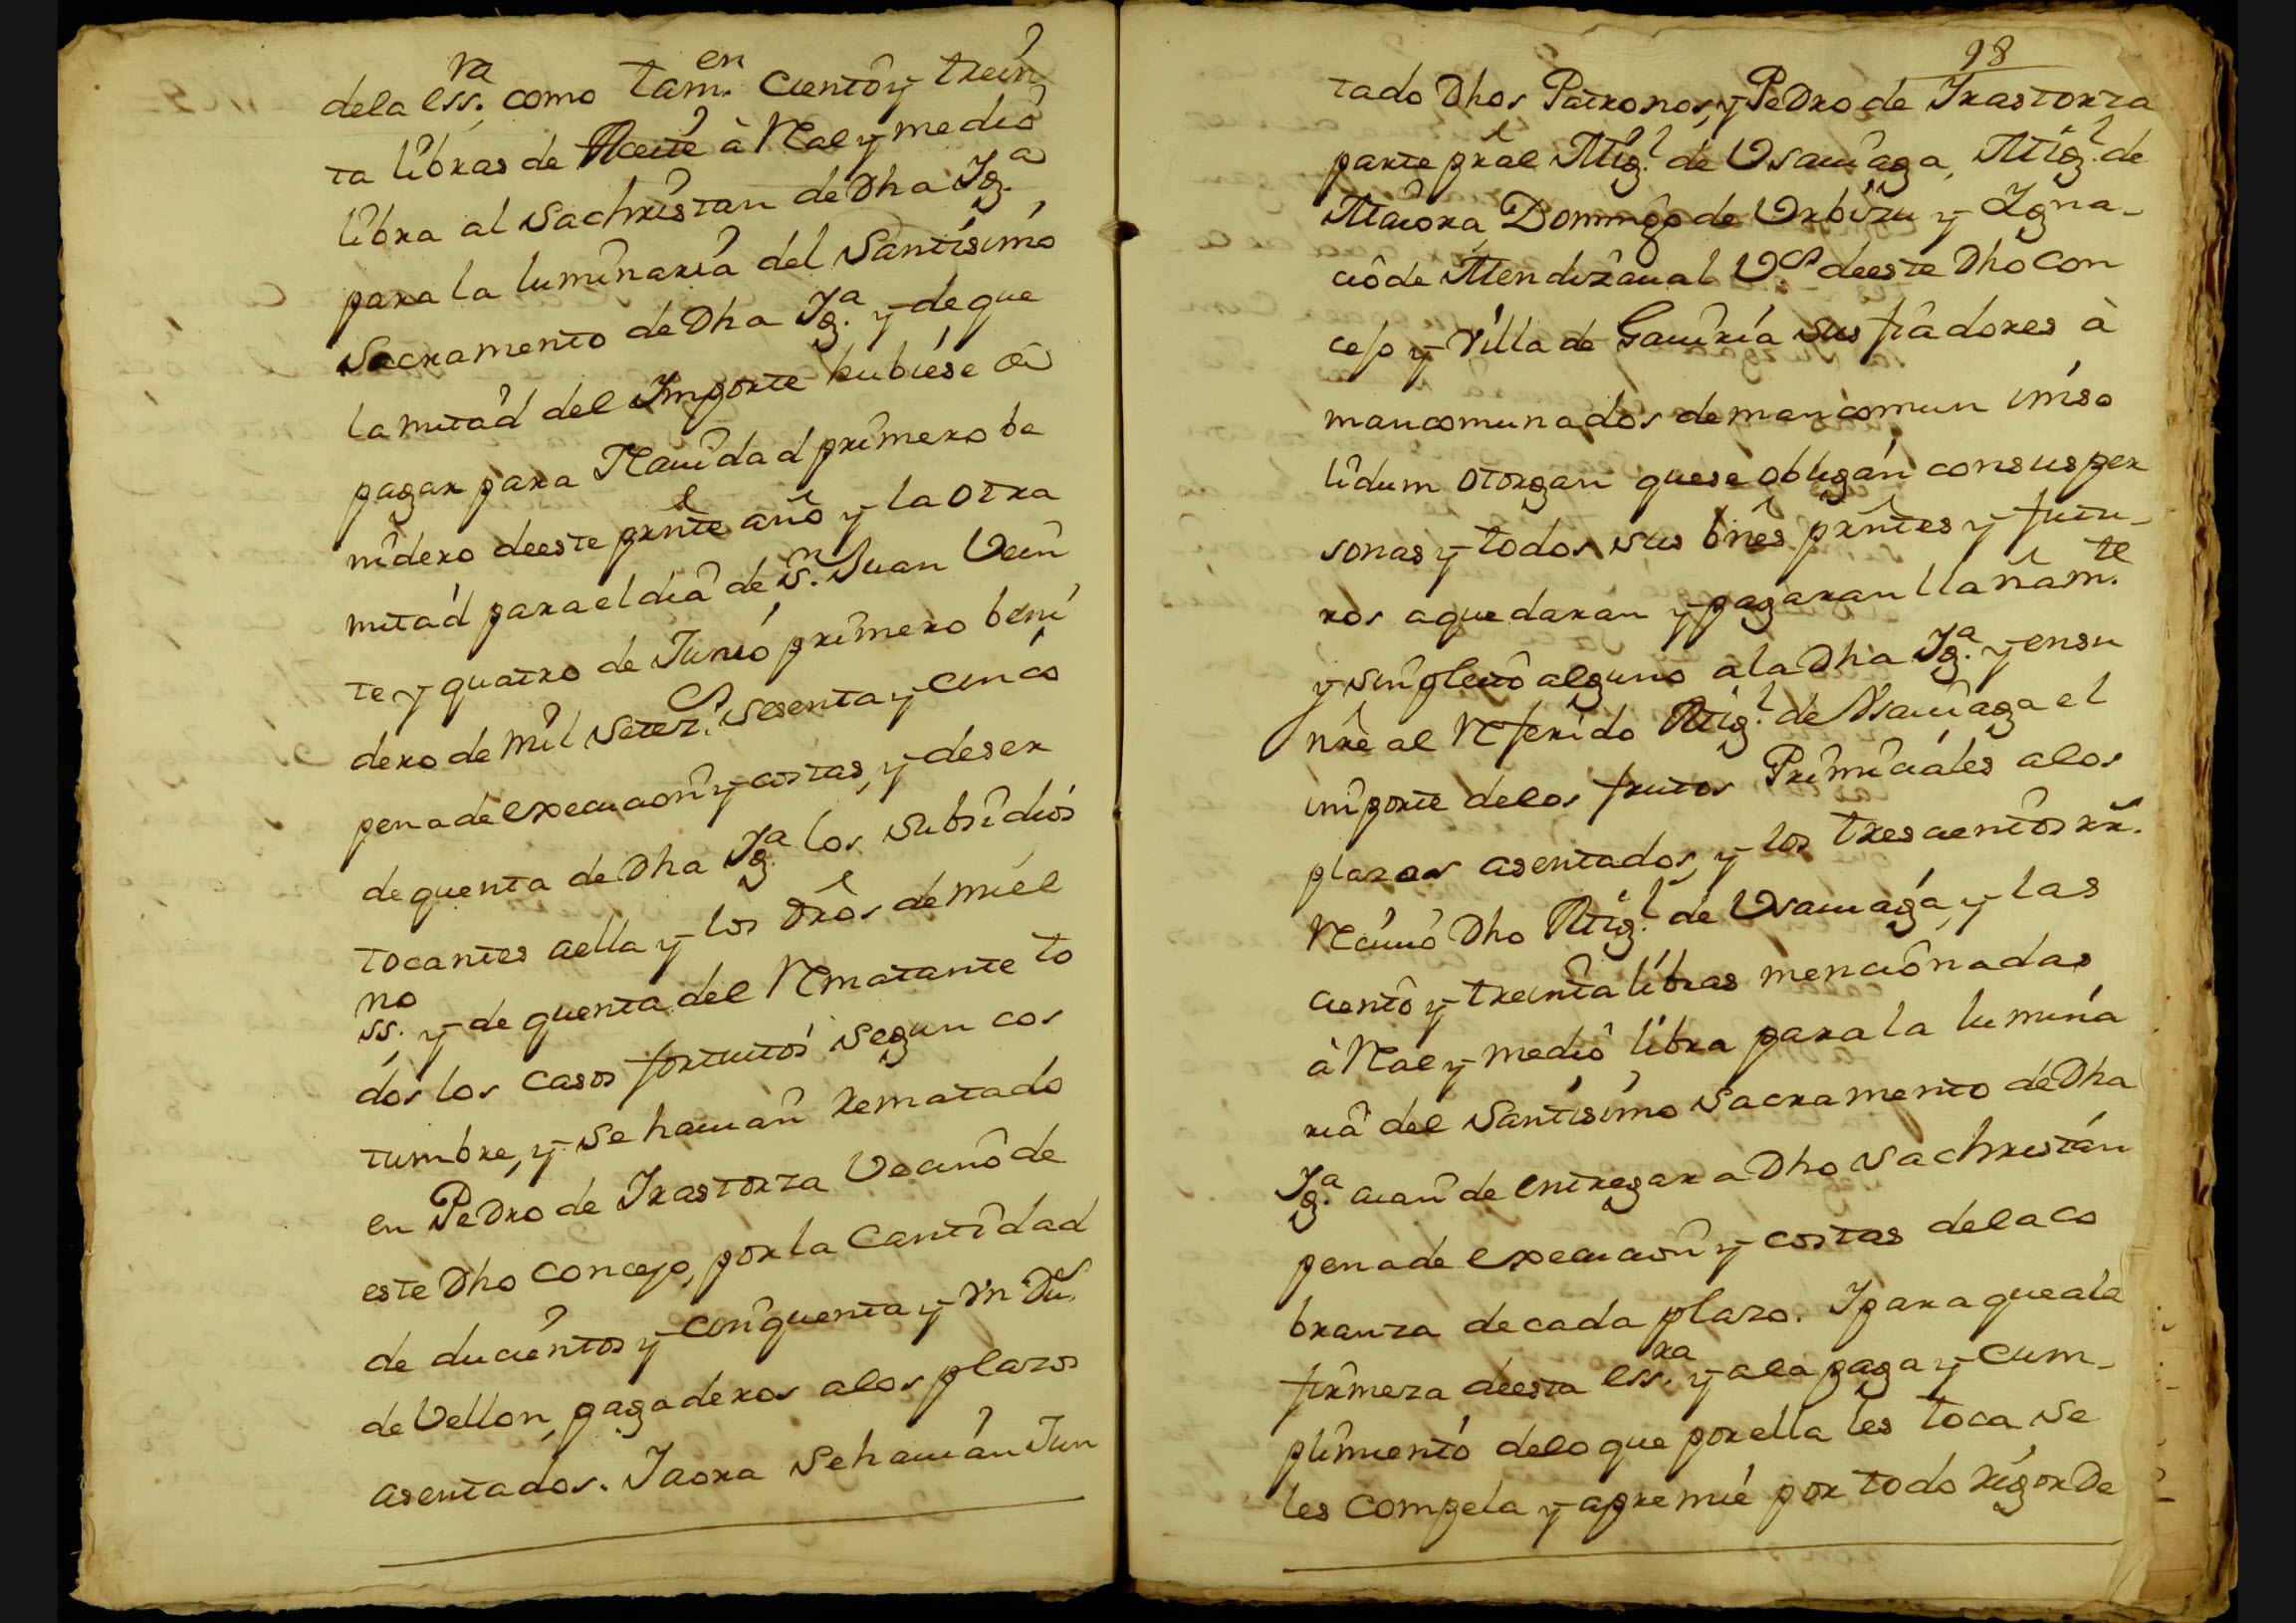 dela ess.ra como tam.en ciento y trein
ta libras de Aceite à Real y medio
libra al Sachristan de Dha Ig.a
para la luminaria del Santisimo
Sacramento de Dha Ig.a y de que
la mitad del Importe hubiese de
pagar para Navidad primero be
nidero deeste prnte año y la otra
mitad para el dia de S.n Juan Vein
te y quatro de Junio primero beni
dero de mil setez.s sesenta y cinco
pena de execucion y costas, y deser
de quenta de Dha Ig.a los subsidios
tocantes aella y los dros de miel
ss.no y de quenta del Rematante to
dos los casos fortuitos segun cos
tumbre, y se havian Rematado
en Pedro de Irastorza Vecino de
este Dho Concejo, por la Cantidad
de ducientos y cinquenta y Vn Du.s
de Vellon, pagaderos alos plazos
asentados. Iaora se havian Jun
98
tado Dhos Patronos, y Pedro de Irastorza
parte pral Mig.l de Vsauiaga, Mig.l de
Maiora Domingo de Vrbizu y Igna-
cio de Mendizaual V.os deeste Dho Con
cejo y Villa de Gauiria sus fiadores à
mancomunados de mancomun inso
lidum otorgan quese obligan consusper
sonas y todos sus bnes prntes y futu-
ros aquedaran y pagaran llanam.te
y sin pleito alguno ala Dha Ig.a y ensu
nre al Referido Mig.l de Vsauiaga el
importe delos frutos Primiciales alos
plazos asentados, y los trescientos rr.s
Reciuio Dho Mig.l de Vsauiaga, y las
ciento y treinta libras mencionadas
à Real y medio libra para la lumina
ria del Santisimo Sacramento de Dha
Ig.a aian de entregar a Dho Sachristan
pena de execucion y costas dela co
branza de cada plazo. I para queala
firmeza deesta ess.ra y ala paga y cum-
plimiento delo que porella les toca se
les compela y apremie por todo Rigor De